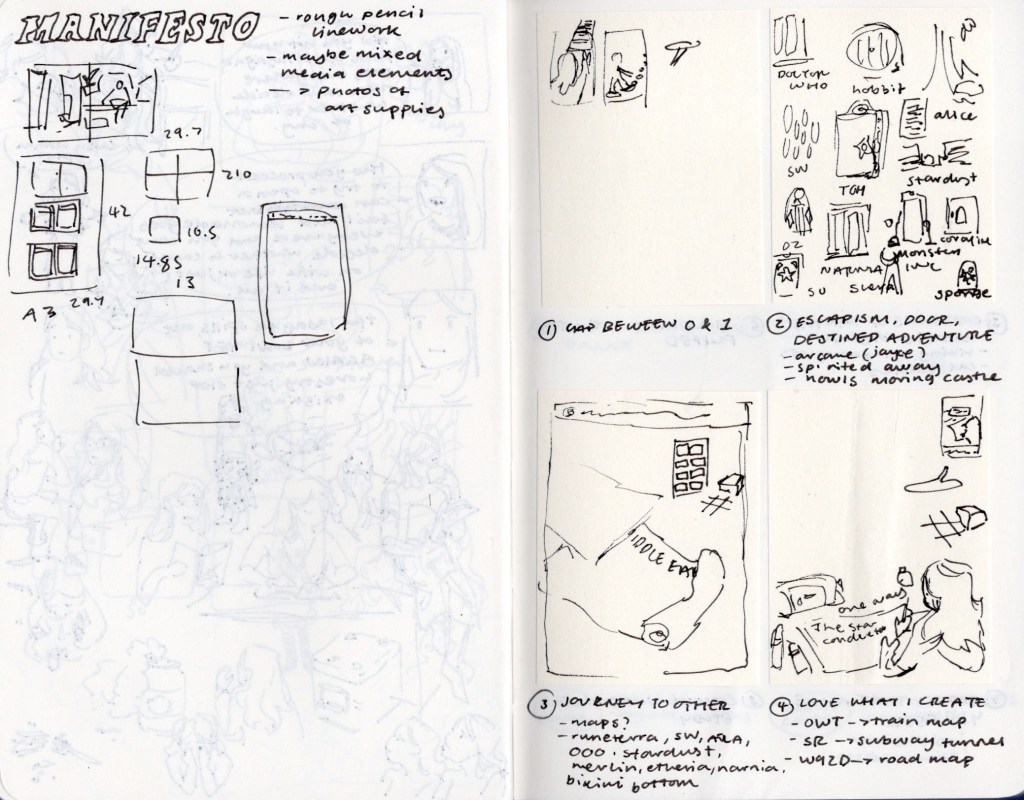 MANIFESTO
- rough pencil
linework
- maybe mixed
media elements
-> photos of
art supplies
29.7
210
42
10.5
14.85
13
A3 29.7
DOCTOR
WHO
hobbit
alice
SW
TGH
stardust
OZ
NARNIA
monsters
inc
coraline
SU
sponge
① GAP BETWEEN 0 & 1
② ESCAPISM, DOOR,
DESTINED ADVENTURE
- arcane (jayce?)
- spirited away
- howls moving castle
IDDLE EA
one way
The Star
conductor
③ JOURNEY TO OTHER
- maps?
- runeterra, SW, ATLA,
OOO, stardust,
merlin, etheria, narnia,
bikini bottom
④ LOVE WHAT I CREATE
- OWT -> train map
- SR -> subway tunnel
- W92D -> road map